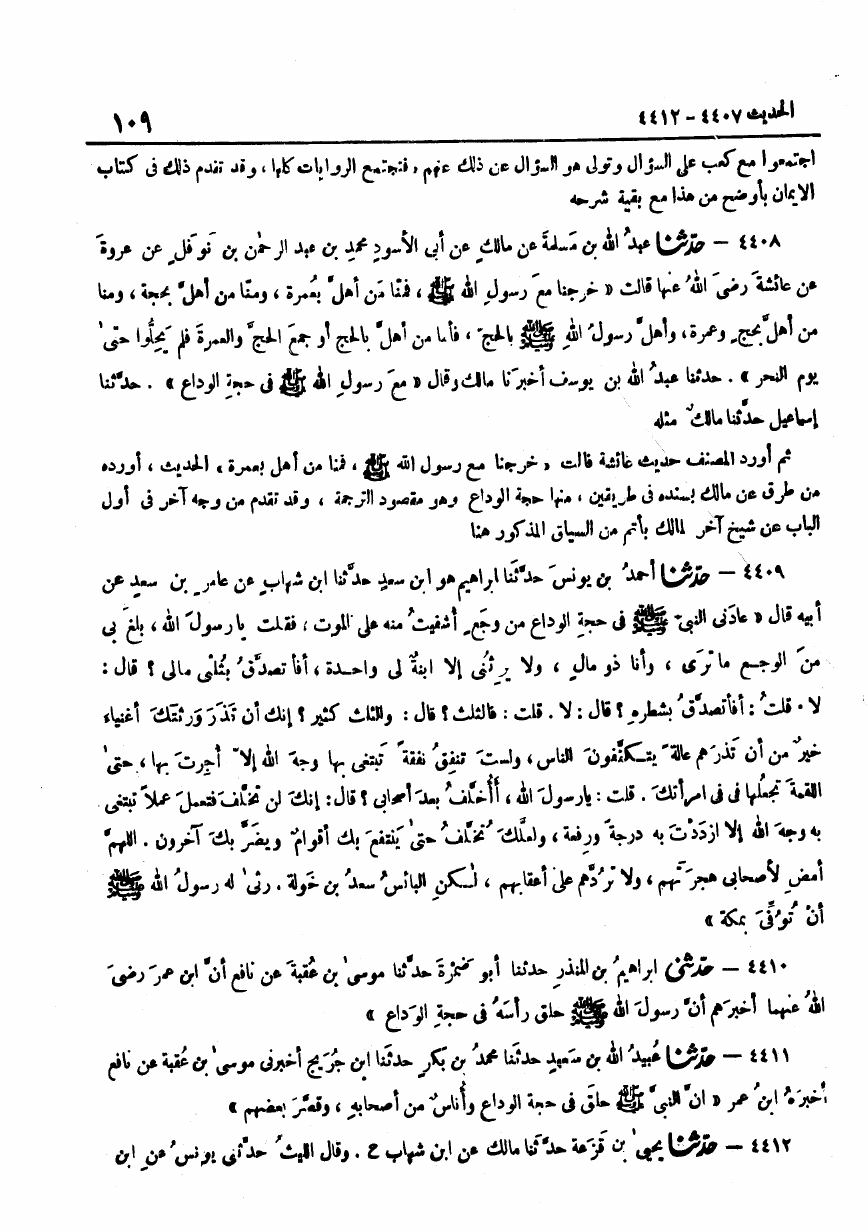 الحديث ٤٤٠٧ - ٤٤١٢
١٠٩
اجتمعوا مع كعب على السؤال وتولى هو السؤال عن ذلك عنهم ، فتجتمع الروايات كلها ، وقد تقدم ذلك فى كتاب
الايمان بأوضح من هذا مع بقية شرحه
٤٤٠٨ - حدَّثنا عبدُ الله بن مَسلمةَ عن مالكٍ عن أبى الأسودِ محمدِ بن عبد الرحمٰن بن نَوفَلٍ عن عروةَ
عن عائشةَ رضىَ اللهُ عنها قالت « خرجنا معَ رسولِ الله ﷺ ، فمنَّا مَن أهلَّ بعُمرة ، ومنَّا من أهلَّ بحجة ، ومنا
من أهلَّ بحجٍ وعمرة ، وأهلَّ رسولُ اللهِ ﷺ بالحجّ ، فأما من أهلَّ بالحج أو جمعَ الحجَّ والعمرةَ فلم يَحِلُّوا حتىٰ
يوم النحر » . حدثنا عبدُ الله بن يوسف أخبرَنا مالك وقال « معَ رسولِ الله ﷺ فى حجةِ الوداع » . حدَّثنا
إسماعيل حدَّثنا مالكٌ مثله
ثم أورد المصنف حديث عائشة قالت « خرجنا مع رسول الله ﷺ ، فمنا من أهل بعمرة » الحديث ، أورده
من طرق عن مالك بسنده فى طريقين ، منها حجة الوداع وهو مقصود الترجمة ، وقد تقدم من وجه آخر فى أول
الباب عن شيخ آخر لمالك بأتم من السياق المذكور هنا
٤٤٠٩ - حدَّثنا أحمدُ بن يونسَ حدَّثَنا ابراهيم هو ابن سعدٍ حدَّثنا ابن شهابٍ عن عامرِ بن سعدٍ عن
أبيه قال « عادَنى النبىّ ﷺ فى حجةِ الوداع من وجَعٍ أشفَيتُ منه على الموت ، فقلت يا رسولَ الله ، بلغَ بى
منَ الوجع ما ترَى ، وأنا ذو مالٍ ، ولا يرِثُنى إلا ابنةٌ لى واحدة ، أفأتصدَّقُ بثُلثْى مالى ؟ قال :
لا . قلتُ : أفأتصدَّقُ بشطرهِ ؟ قال : لا . قلت : فالثلث ؟ قال : والثلث كثير ؟ إنك أن تَذَرَ وَرثتَكَ أغنياء
خيرٌ من أن تَذرَهم عالةً يتكفَّفونَ الناس ، ولستَ تنفِقُ نفقةً تَبتغى بها وجهَ الله إلاّ أجِرتَ بها ، حتىٰ
اللقمةَ تجعلُها فى فى امرأتكَ . قلت : يا رسولَ الله ، أَأُخلَّفُ بعدَ أصحابى ؟ قال : إنكَ لن تخلَّفَ فتعملَ عملاً تبتغى
به وجهَ الله إلا ازدَدْتَ به درجةً ورِفعة ، ولعلَّكَ تُخلَّفُ حتىٰ يَنتفعَ بك أقوامٌ ويضَرَّ بكَ آخرون . اللهمَّ
أمضِ لأصحابى هجرَتَهم ، ولا تردَّهم علىٰ أعقابهم ، لٰكنِ البائسُ سعدُ بن خَولة . رثىٰ له رسولُ الله ﷺ
أنْ تُوُفِّىَ بمكة »
٤٤١٠ - حدَّثنى ابراهيمُ بن المنذرِ حدثنا أبو ضَمْرَةَ حدَّثنا موسىٰ بن عُقبةَ عن نافع أنَّ ابن عمرَ رضىَ
اللهُ عنهما أخبرَهم أنَّ رسولَ الله ﷺ حلق رأسَهُ فى حجةِ الوَداع »
٤٤١١ - حدَّثنا عُبيدُ الله بن سَعيدٍ حدثنَا محمدُ بن بَكرٍ حدثَنا ابن جُرَيج أخبرنى موسىٰ بن عُقبة عن نافع
أخبرَهُ ابنُ عمر « انَّ النبىَّ ﷺ حلقَ فى حجة الوداع وأُناسٌ من أصحابهِ ، وقصَّرَ بعضهم »
٤٤١٢ - حدَّثنا يحيىٰ بن قَزَعة حدَّثَنا مالك عن ابن شهاب ح . وقال الليثُ حدَّثنى يونسُ عنِ ابن